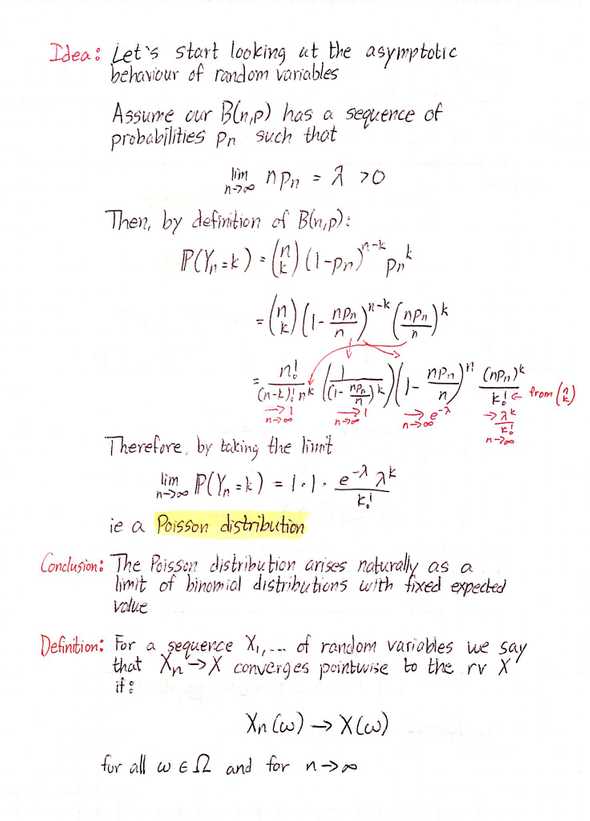 Idea: Let's start looking at the asymptotic
behaviour of random variables
Assume our B(n,p) has a sequence of
probabilities pₙ such that
lim n→∞ npₙ = λ >0
Then, by definition of B(n,p):
ℙ(Yₙ=k) = (n k) (1-pₙ)ⁿ⁻ᵏ pₙᵏ
= (n k) (1 - npₙ/n)ⁿ⁻ᵏ (npₙ/n)ᵏ
= n!/((n-k)! nᵏ) (1/(1 - npₙ/n)ᵏ) (1 - npₙ/n)ⁿ (npₙ)ᵏ/k! ← from (n k)
→1 n→∞ →1 n→∞ → e^-λ n→∞ → λᵏ/k! n→∞
Therefore, by taking the limit
lim n→∞ ℙ(Yₙ=k) = 1·1· e^-λ λᵏ/k!
ie a Poisson distribution
Conclusion: The Poisson distribution arises naturally as a
limit of binomial distributions with fixed expected
value
Definition: For a sequence X₁,... of random variables we say
that Xₙ→X converges pointwise to the rv X
if:
Xₙ(ω) → X(ω)
for all ω ∈ Ω and for n→∞